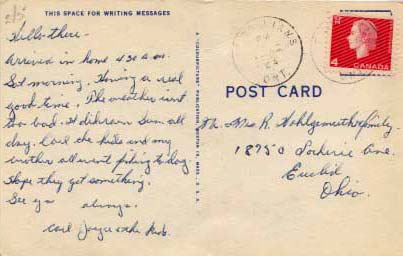 THIS SPACE FOR WRITING MESSAGES
Hello there -
Arrived in home 4:30 A.M.
Sat morning. Having a real
good time. The weather isnt
too bad. It did rain Sun. all
day. Carl the kids and my
brother all went fishing today.
Hope they get something.
See ya always.
Carl Joyce & the kids.
POST CARD
4
CANADA
ONT.
Mrs R. & family
Ave.
Euclid
Ohio.